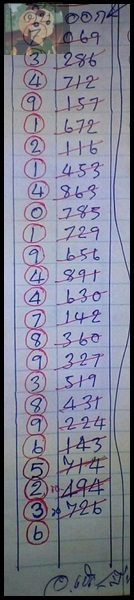 007
7 069
3 286
4 712
9 157
1 672
2 116
1 453
4 863
0 785
1 729
9 656
4 891
4 630
7 142
8 360
9 327
3 519
8 431
9 224
6 143
5 714
2 494
3 726
6